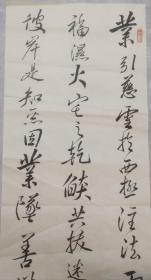 業引慈雲於西極注法
福濕火宅之乾燄共拔迷
彼岸是知惡因業墜善